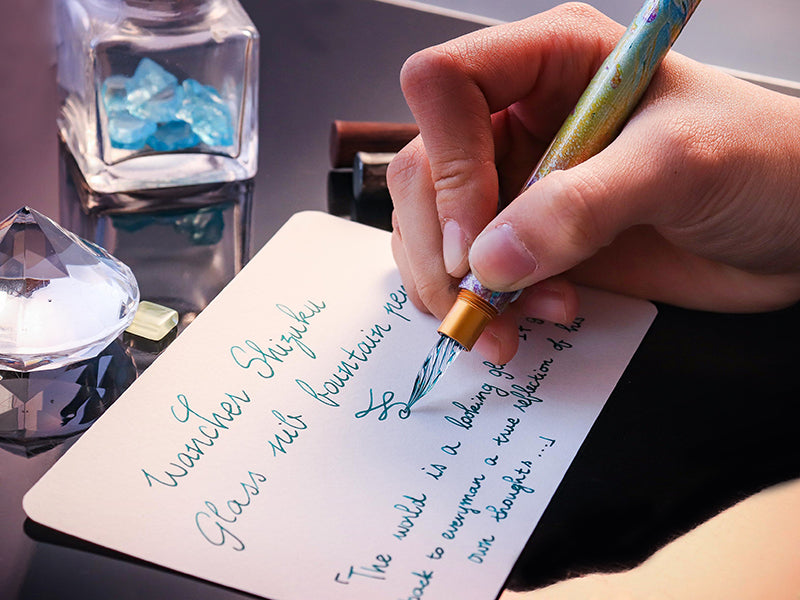 Wancher Shizuku
Glass nib fountain pen
"The world is a looking It g
back to everyman a true reflection of his
own thoughts..."